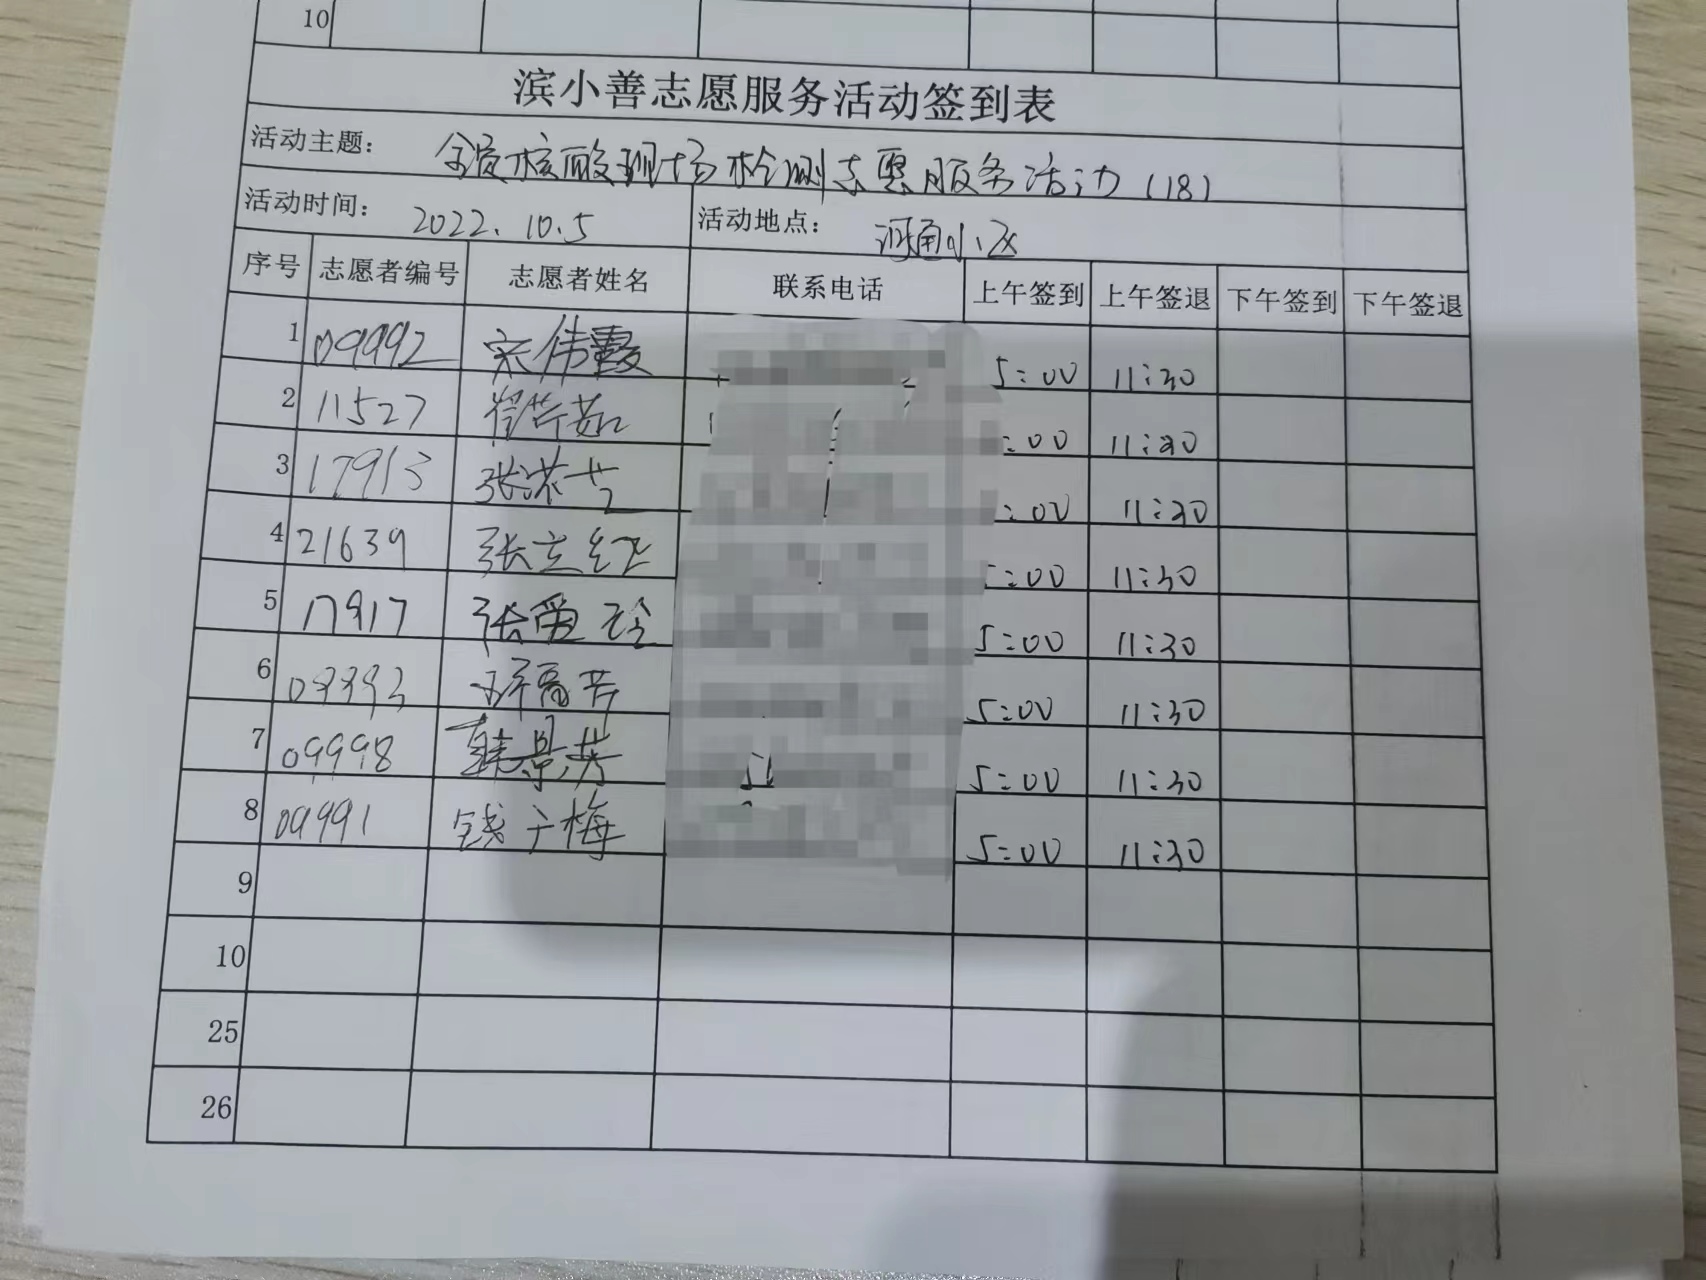 10
滨小善志愿服务活动签到表
活动主题： 全员核酸现场检测志愿服务活动（18）
活动时间： 2022.10.5 活动地点： 河通小区
序号 志愿者编号 志愿者姓名 联系电话 上午签到 上午签退 下午签到 下午签退
1 09992 宋伟霞 5:00 11:30
2 11527 :00 11:30
3 17913 张洪芝 :00 11:30
4 21639 张立红 5:00 11:30
5 17917 张爱玲 5:00 11:30
6 5:00 11:30
7 09998 韩景芳 5:00 11:30
8 09991 钱广梅 5:00 11:30
9
10
25
26